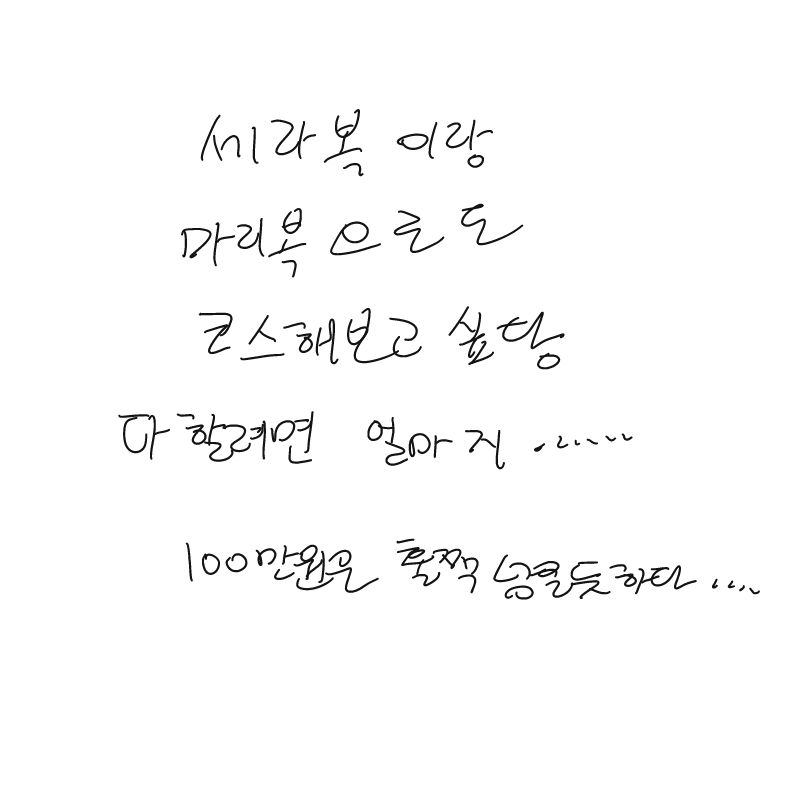 세라복이랑
마리복으로도
코스해보고 싶당
다 할려면 얼마지......
100만원은 훌쩍 넘을듯하다....